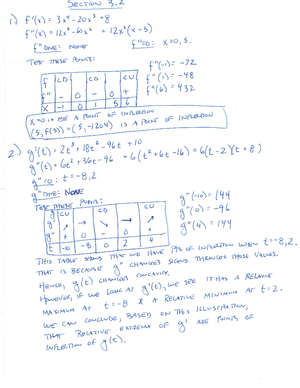 SECTION 3.2
1) f'(x) = 3x⁴ - 20x³ + 8
f"(x) = 12x³ - 60x² = 12x²(x-5)
f" DNE: NONE f"=0: x=0,5.
TEST THESE POINTS:
f | CD | CD | CU
f" | - 0 - 0 +
x | -1 0 1 5 6
f"(-1) = -72
f"(1) = -48
f"(6) = 432
x=0 IS NOT A POINT OF INFLECTION
(5, f(5)) = (5, -1204) IS A POINT OF INFLECTION
2) g'(t) = 2t³ + 18t² - 96t + 10
g"(t) = 6t² + 36t - 96 = 6(t² + 6t - 16) = 6(t-2)(t+8)
g"=0: t=-8,2
g" DNE: NONE
TEST THESE POINTS:
g | CU | CD | CU
g' | ↗ → ↘ → ↗
g" | + 0 - 0 +
t | -10 -8 0 2 4
g"(-10) = 144
g"(0) = -96
g"(4) = 144
THIS TABLE SHOWS THAT WE HAVE PTS OF INFLECTION WHEN t=-8,2.
THAT IS BECAUSE g" CHANGES SIGNS THROUGH THOSE VALUES.
HENCE, g(t) CHANGES CONCAVITY.
HOWEVER, IF WE LOOK AT g'(t), WE SEE IT HAS A RELATIVE
MAXIMUM AT t=-8 & A RELATIVE MINIMUM AT t=2.
WE CAN CONCLUDE, BASED ON THIS ILLUSTRATION,
THAT RELATIVE EXTREMA OF g' ARE POINTS OF
INFLECTION OF g(t).